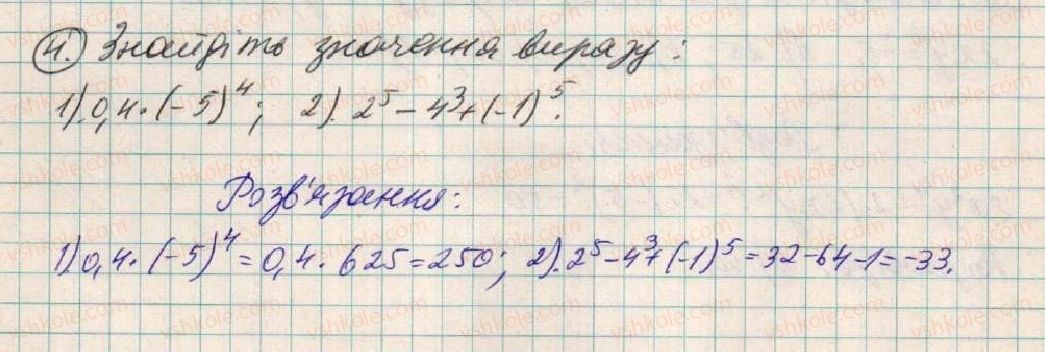 4. Знайдіть значення виразу:
1). 0,4·(-5)⁴; 2). 2⁵-4³+(-1)⁵.
Розв'язання:
1) 0,4·(-5)⁴=0,4·625=250; 2). 2⁵-4³+(-1)⁵=32-64-1=-33.